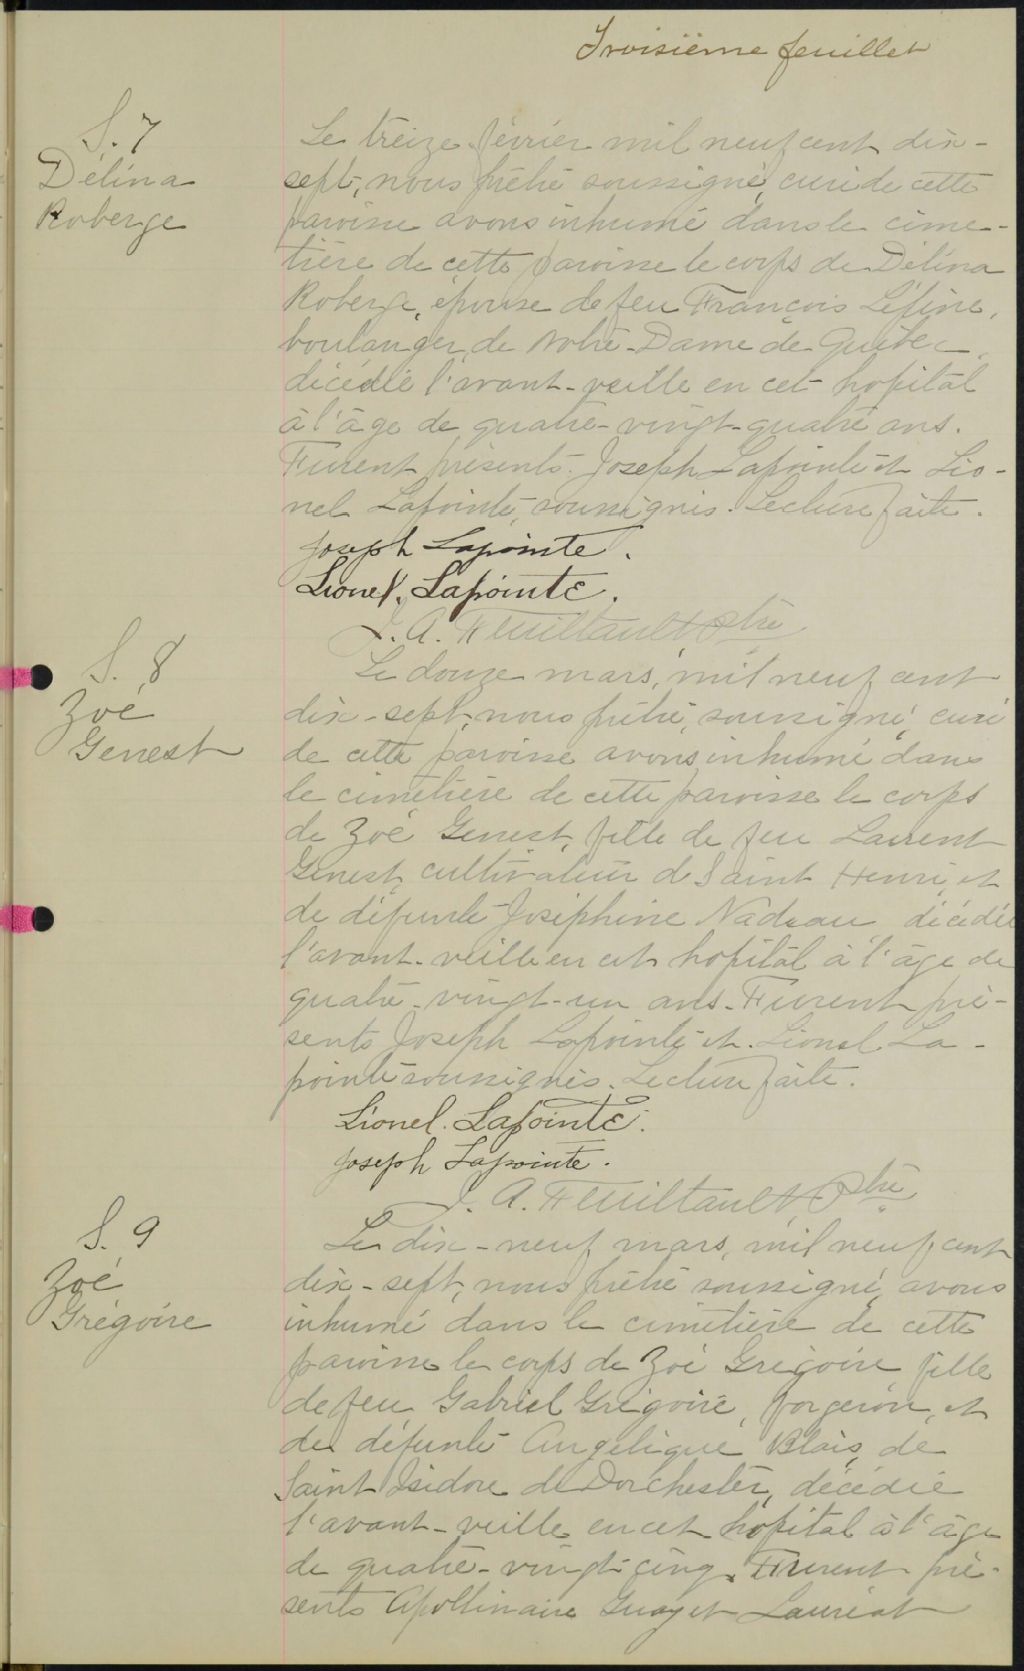 Troisième feuillet
S. 7
Délina
Roberge
Le treize février mil neuf cent dix-
sept, nous prêtre soussigné, curé de cette
paroisse avons inhumé dans le cime-
tière de cette paroisse le corps de Délina
Roberge, épouse de feu François Lépine,
boulanger, de Notre-Dame de Québec,
décédée l'avant-veille en cet hopital
à l'âge de quatre-vingt-quatre ans.
Furent présents Joseph Lapointe et Lio-
nel Lapointe, soussignés. Lecture faite.
Joseph Lapointe.
Lionel. Lapointe.
J. A. Feuiltault Ptre
S. 8
Zoé
Genest
Le douze mars, mil neuf cent
dix-sept, nous prêtre, soussigné, curé
de cette paroisse avons inhumé dans
le cimetière de cette paroisse le corps
de Zoé Genest, fille de feu Laurent
Genest, cultivateur de Saint Henri, et
de défunte Joséphine Nadeau, décédée
l'avant-veille en cet hopital à l'âge de
quatre-vingt-un ans. Furent pré-
sents Joseph Lapointe et Lionel La-
pointe soussignés. Lecture faite.
Lionel. Lapointe.
Joseph Lapointe.
J. A. Feuiltault, Ptre
S. 9
Zoé
Grégoire
Le dix-neuf mars, mil neuf cent
dix-sept, nous prêtre soussigné, avons
inhumé dans le cimetière de cette
paroisse le corps de Zoé Grégoire, fille
de feu Gabriel Grégoire, forgeron, et
de défunte Angélique Blais, de
Saint Isidore de Dorchester, décédée
l'avant-veille en cet hôpital à l'âge
de quatre-vingt-cinq. Furent pré-
sents Apollinaire Guay et Lauréat